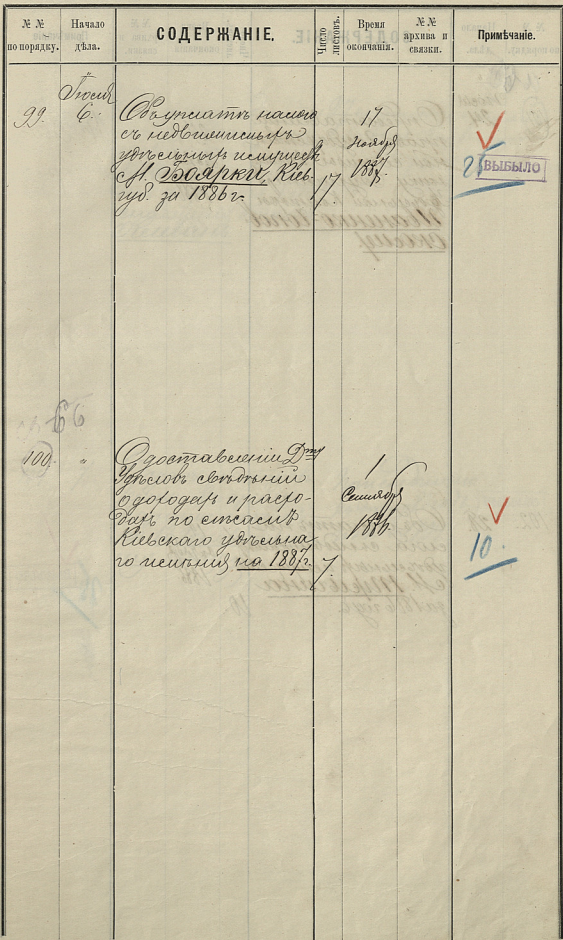 № №
по порядку.
Начало
дѣла.
СОДЕРЖАНІЕ.
Число
листовъ.
Время
окончанія.
№ №
архива и
связки.
Примѣчаніе.
99.
Іюля
6.
Объ уплатѣ налога
съ недвижимыхъ
удѣльныхъ имуществъ
М. Боярки, Кіев.
губ. за 1886 г.
17
Ноября
1887
25
ВЫБЫЛО
100.
"
О доставленіи Дту
Удѣловъ свѣдѣній
о доходахъ и расхо-
дахъ по смѣтамъ
Кіевскаго удѣльна-
го имѣнія на 1887 г.
1
Сентября
1886.
10